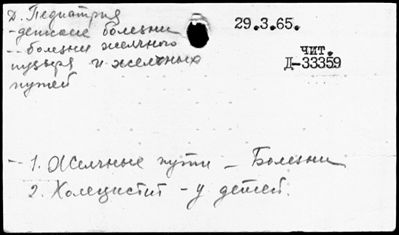 Д. Педиатрия
- детские болезни
- болезни желчного
пузыря и желчных
путей
29.3.65.
чит.
Д-33359
- 1. Желчные пути - Болезни
2. Холецистит - у детей.